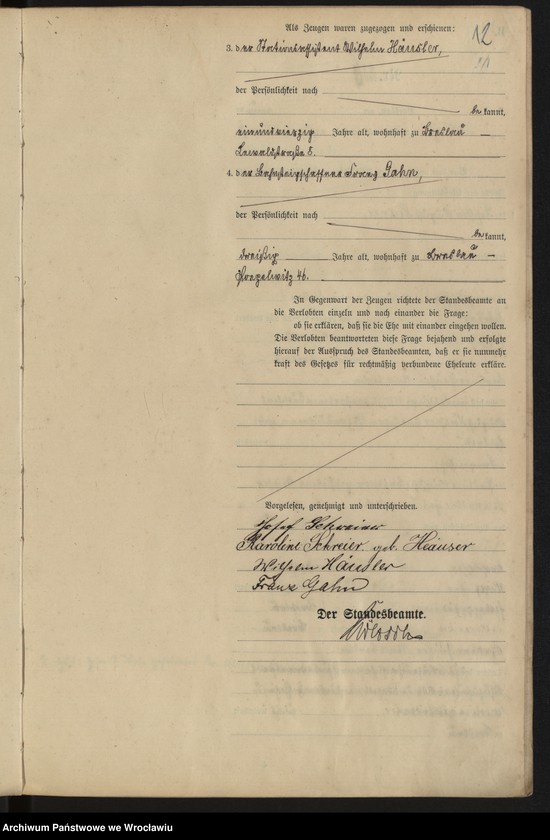 Als Zeugen waren zugezogen und erschienen:
12
3. der Stationsassistent Wilhelm Häusler,
der Persönlichkeit nach
bekannt,
einundvierzig Jahre alt, wohnhaft zu Breslau
Lewaldstraße 8.
4. der Bahnsteigschaffner Franz Gahn,
der Persönlichkeit nach
bekannt,
dreißig Jahre alt, wohnhaft zu Breslau –
Pöpelwitz 46.
In Gegenwart der Zeugen richtete der Standesbeamte an
die Verlobten einzeln und nach einander die Frage:
ob sie erklären, daß sie die Ehe mit einander eingehen wollen.
Die Verlobten beantworteten diese Frage bejahend und erfolgte
hierauf der Ausspruch des Standesbeamten, daß er sie nunmehr
kraft des Gesetzes für rechtmäßig verbundene Eheleute erkläre.
Vorgelesen, genehmigt und unterschrieben.
Josef Schreier
Karoline Schreier geb. Heuser
Wilhelm Häusler
Franz Gahn
Der Standesbeamte.
Archiwum Państwowe we Wrocławiu